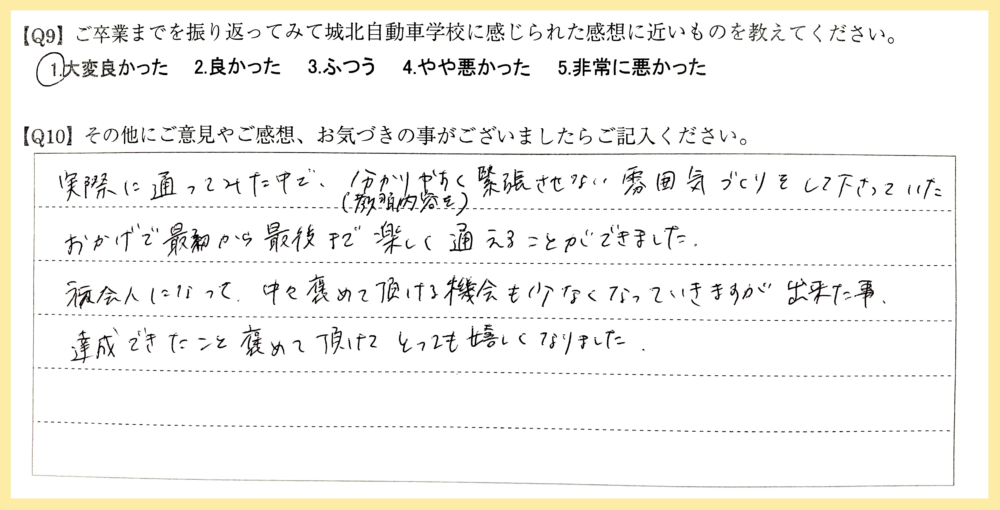 【Q9】ご卒業までを振り返ってみて城北自動車学校に感じられた感想に近いものを教えてください。
1.大変良かった 2.良かった 3.ふつう 4.やや悪かった 5.非常に悪かった
【Q10】その他にご意見やご感想、お気づきの事がございましたらご記入ください。
実際に通ってみた中で、分かりやすく緊張させない雰囲気づくりをして下さっていた
(教習内容を)
おかげで最初から最後まで楽しく通えることができました。
社会人になって、中々褒めて頂ける機会も少なくなっていきますが出来た事、
達成できたこと褒めて頂けてとっても嬉しくなりました。